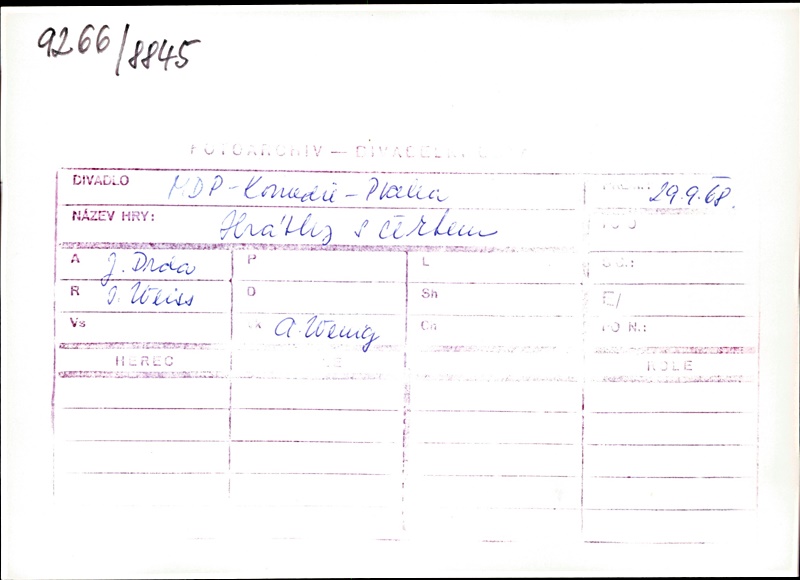 9266/8845
FOTOARCHIV – DIVADELNÍ
DIVADLO MDP – Komedie – Praha 29.9.68.
NÁZEV HRY: Hrátky s čertem
A J. Drda P L
R J. Weiss O Sh
Vs A. Wenig Ch
HEREC ROLE